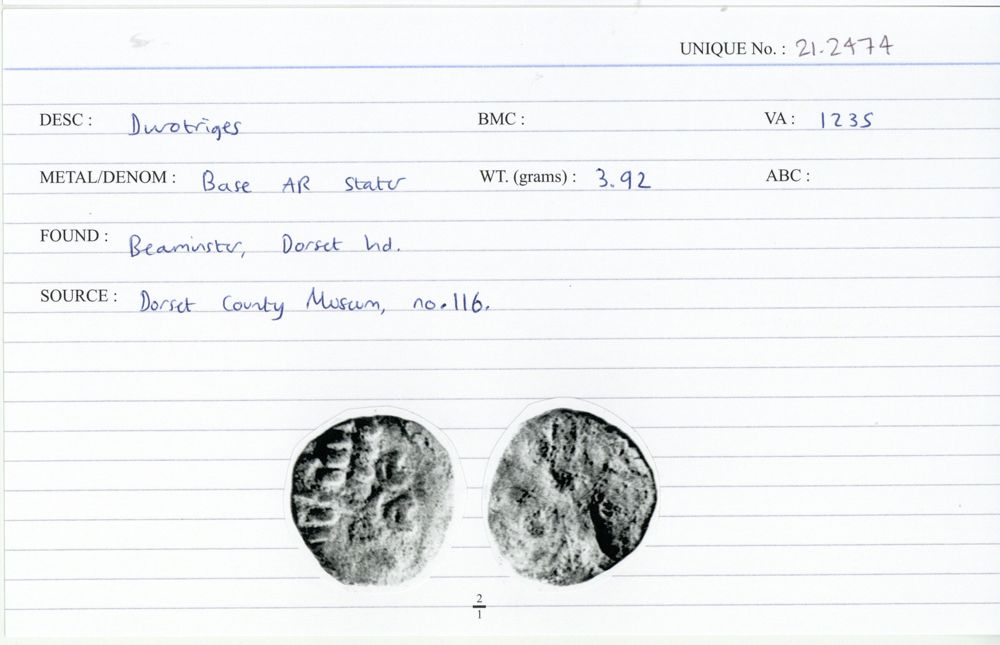 UNIQUE No. : 21.2474
DESC : Durotriges BMC : VA : 1235
METAL/DENOM : Base AR stater WT. (grams) : 3.92 ABC :
FOUND : Beaminster, Dorset hd.
SOURCE : Dorset County Museum, no. 116.
2
1